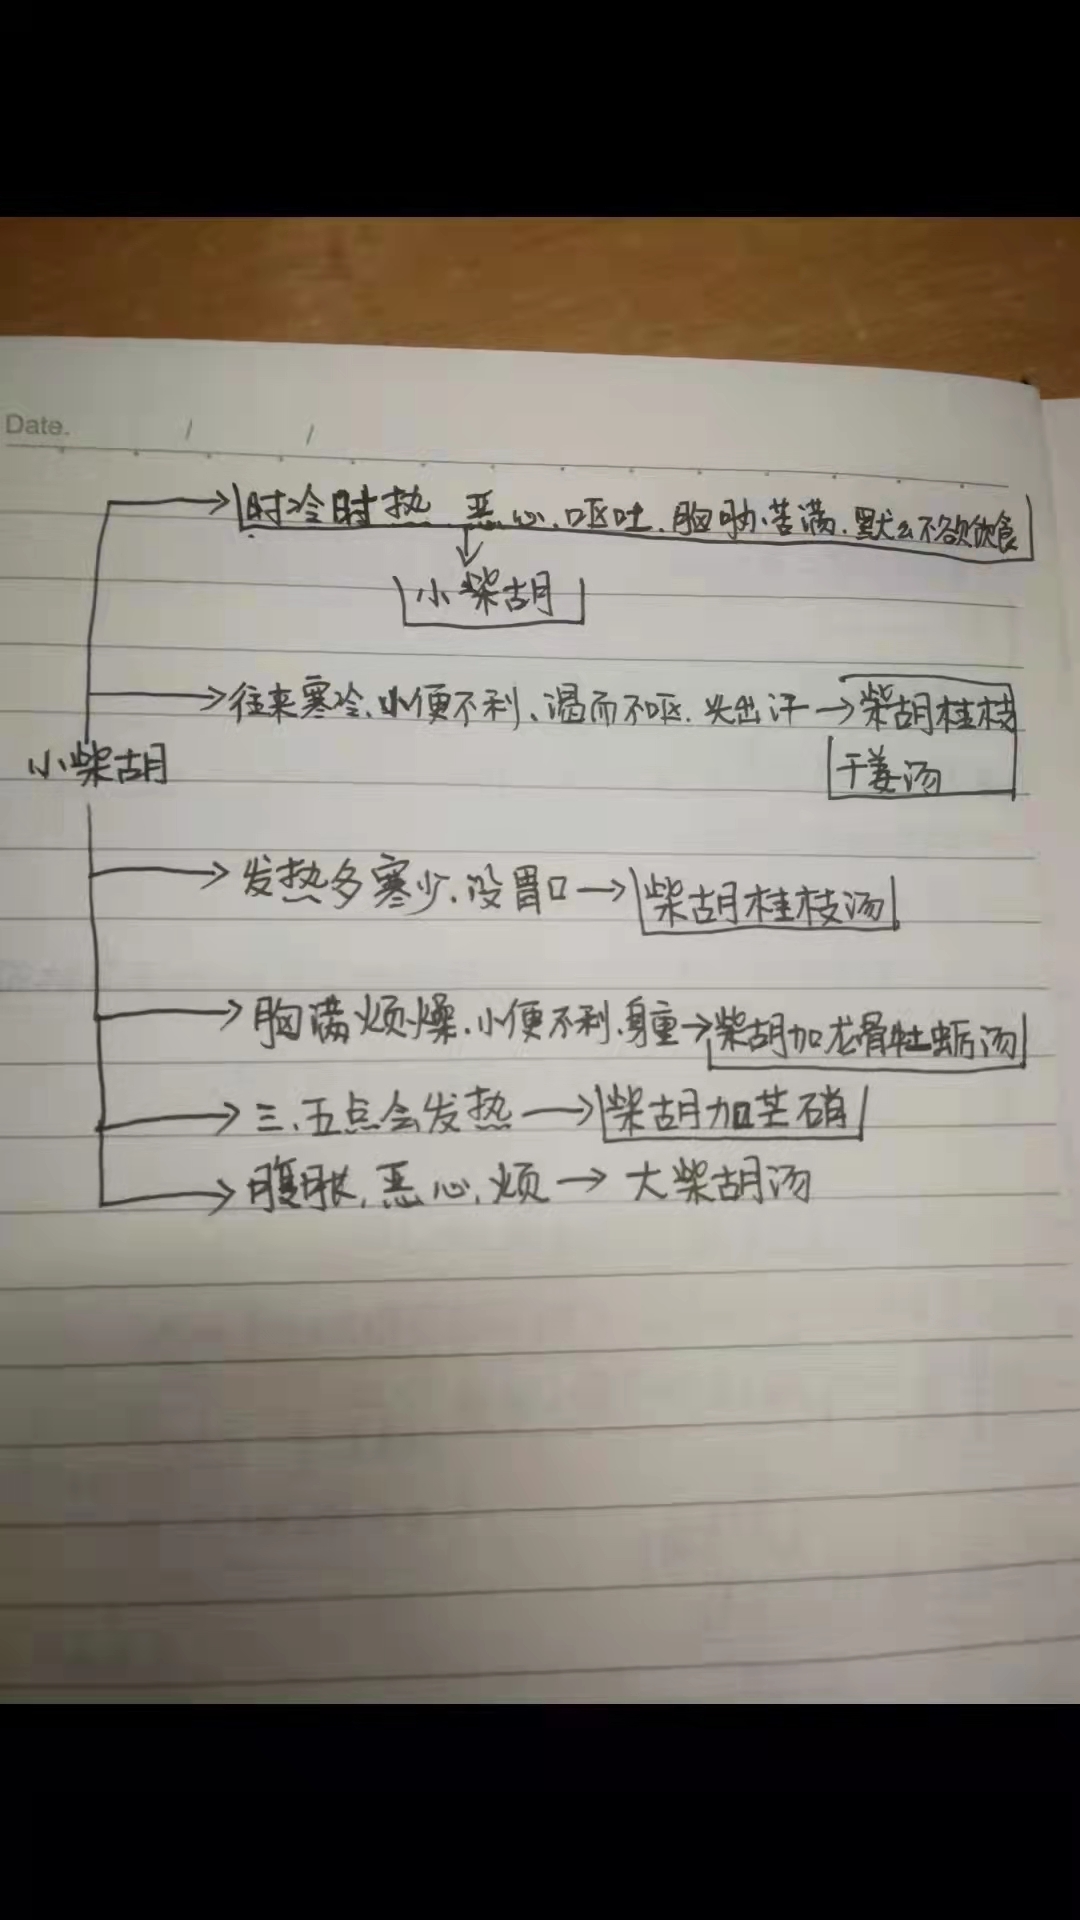 Date. / /
时冷时热 恶心、呕吐、胸胁苦满、默么不欲饮食
小柴胡
往来寒冷、小便不利、渴而不呕、头出汗→柴胡桂枝
干姜汤
小柴胡
发热多寒少、没胃口→柴胡桂枝汤
胸满烦燥、小便不利、身重→柴胡加龙骨牡蛎汤
三、五点会发热→柴胡加芒硝
腹胀、恶心、烦→大柴胡汤